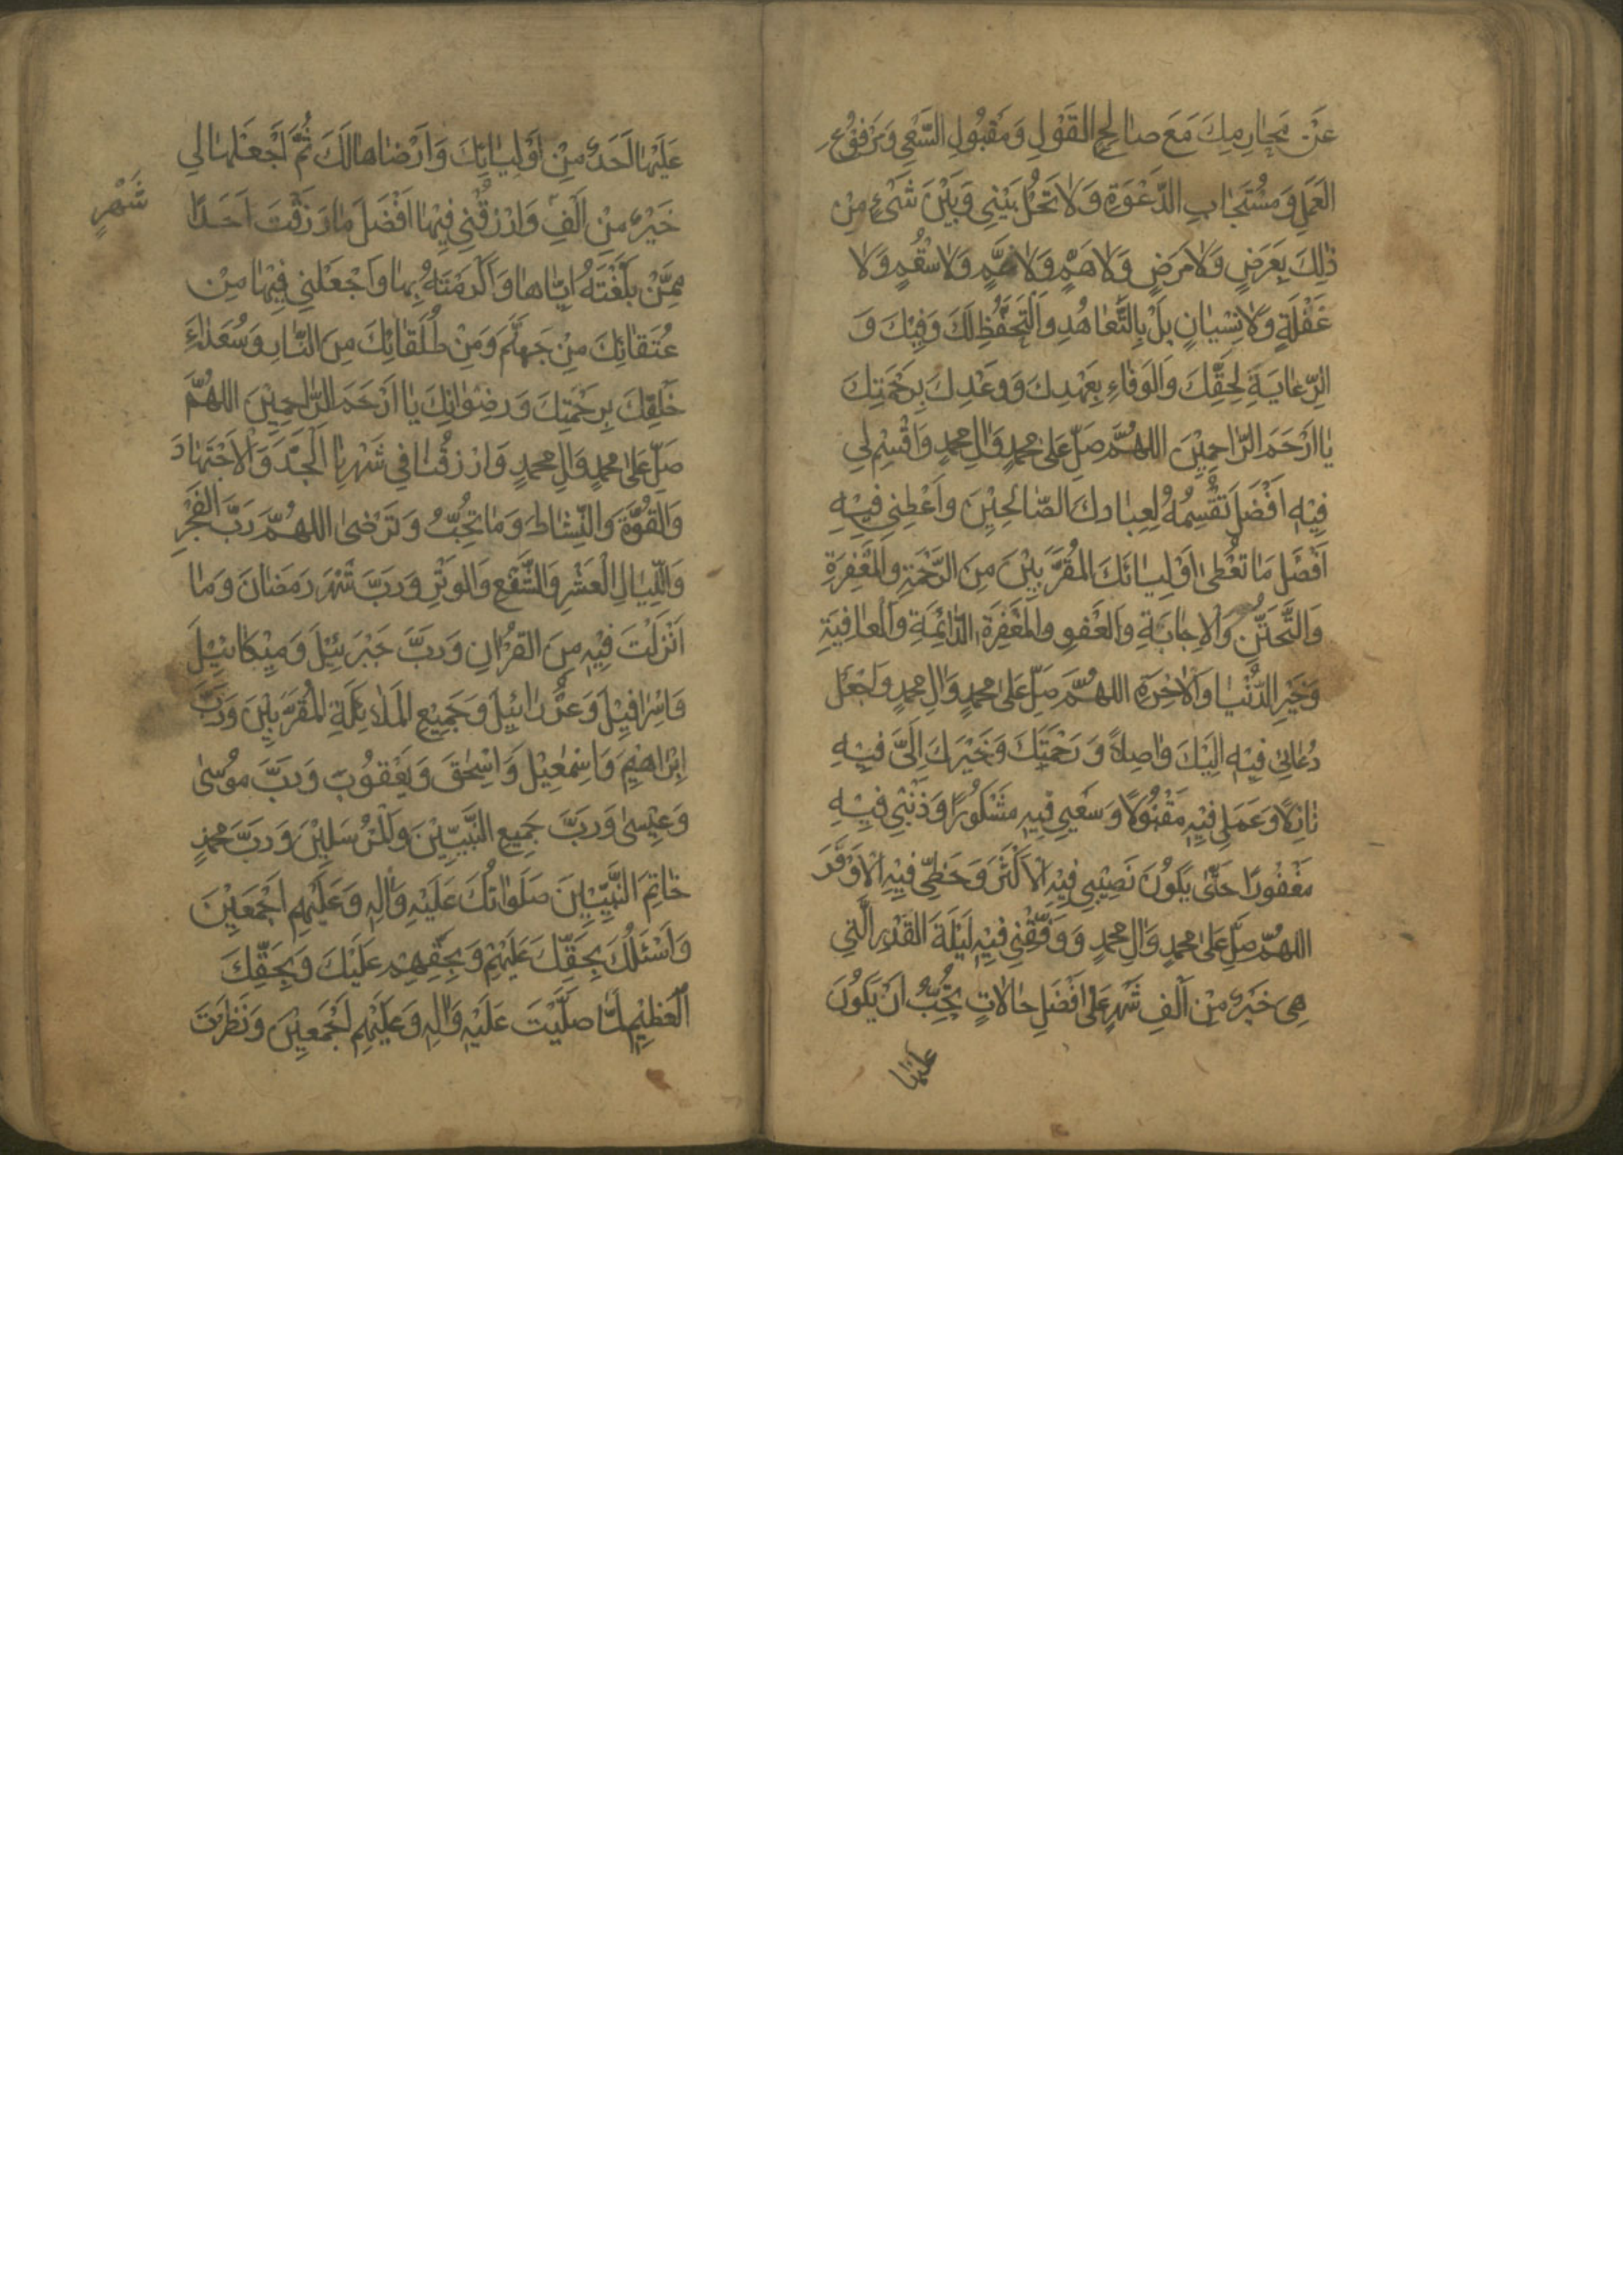 عَنْ مَحَارِمِكَ مَعَ صَالِحِ القَوْلِ وَمَقْبُولِ السَّعْيِ وَمَرْفُوْعِ
العَمَلِ وَمُسْتَجَابِ الدَّعْوَةِ وَلَا تَحُلْ بَيْنِي وَبَيْنَ شَيْءٍ مِنْ
ذٰلِكَ بِعَرَضٍ وَلَا مَرَضٍ وَلَا هَمٍّ وَلَا غَمٍّ وَلَا سُقْمٍ وَلَا
غَفْلَةٍ وَلَا نِسْيَانٍ بَلْ بِالتَّعَاهُدِ وَالتَّحَفُّظِ لَكَ وَفِيْكَ وَ
الرِّعَايَةِ لِحَقِّكَ وَالوَفَاءِ بِعَهْدِكَ وَوَعْدِكَ بِرَحْمَتِكَ
يَا اَرْحَمَ الرَّاحِمِيْنَ اللهُمَّ صَلِّ عَلىٰ محمدٍ وَاٰلِ محمدٍ وَاقْسِمْ لِي
فِيْهِ اَفْضَلَ تَقْسِمُهُ لِعِبَادِكَ الصَّالِحِيْنَ وَاَعْطِنِي فِيْهِ
اَفْضَلَ مَا تُعْطِي اَوْلِيَائَكَ المُقَرَّبِيْنَ مِنَ الرَّحْمَةِ وَالمَغْفِرَةِ
وَالتَّحَنُّنِ وَالاِجَابَةِ وَالعَفْوِ وَالمَغْفِرَةِ الدَّائِمَةِ وَالْعَافِيَةِ
وَخَيْرِ الدُّنْيَا وَالْاٰخِرَةِ اللهُمَّ صَلِّ عَلىٰ محمدٍ وَاٰلِ محمدٍ وَاجْعَلْ
دُعَائِي فِيْهِ اِلَيْكَ وَاصِلاً وَرَحْمَتَكَ وَخَيْرَكَ اِلَيَّ فِيْهِ
نَازِلاً وَعَمَلِي فِيْهِ مَقْبُولاً وَسَعْيِي فِيْهِ مَشْكُورًا وَذَنْبِي فِيْهِ
مَغْفُورًا حَتّىٰ يَكُونَ نَصِيْبِي فِيْهِ الْاَكْثَرَ وَحَظِّي فِيْهِ الْاَوْفَرَ
اللهُمَّ صَلِّ عَلىٰ محمدٍ وَاٰلِ محمدٍ وَوَفِّقْنِي فِيْهِ لَيْلَةَ القَدْرِ الَّتِي
هِيَ خَيْرٌ مِنْ اَلْفِ شَهْرٍ عَلىٰ اَفْضَلِ حَالَاتٍ تُحِبُّ اَنْ يَكُونَ
عَلَيْهَا
عَلَيْهَا اَحَدٌ مِنْ اَوْلِيَائِكَ وَاَرْضَاهَا لَكَ ثُمَّ اجْعَلْهَا لِي
خَيْرٌ مِنْ اَلْفِ وَارْزُقْنِي فِيْهَا اَفْضَلَ مَا رَزَقْتَ اَحَدًا
شَهْرٍ
مِمَّنْ بَلَّغْتَهُ اِيَّاهَا وَاَكْرَمْتَهُ بِهَا وَاجْعَلْنِي فِيْهَا مِنْ
عُتَقَائِكَ مِنْ جَهَنَّمَ وَمِنْ طُلَقَائِكَ مِنَ النَّارِ وَسُعَدَاءِ
خَلْقِكَ بِرَحْمَتِكَ وَرِضْوَانِكَ يَا اَرْحَمَ الرَّاحِمِيْنَ اللهُمَّ
صَلِّ عَلىٰ محمدٍ وَاٰلِ محمدٍ وَارْزُقْنَا فِي شَهْرِنَا الْجِدَّ وَالْاِجْتِهَادَ
وَالقُوَّةَ وَالنَّشَاطَ وَمَا تُحِبُّ وَتَرْضىٰ اللهُمَّ رَبَّ الفَجْرِ
وَاللَّيَالِ الْعَشْرِ وَالشَّفْعِ وَالوَتْرِ وَرَبَّ شَهْرِ رَمَضَانَ وَمَا
اَنْزَلْتَ فِيْهِ مِنَ القُرْاٰنِ وَرَبَّ جَبْرَئِيْلَ وَمِيْكَائِيْلَ
وَاِسْرَافِيْلَ وَعِزْرَائِيْلَ وَجَمِيْعِ المَلَائِكَةِ المُقَرَّبِيْنَ وَرَبَّ
اِبْرَاهِيْمَ وَاِسْمٰعِيْلَ وَاِسْحٰقَ وَيَعْقُوبَ وَرَبَّ مُوسىٰ
وَعِيْسىٰ وَرَبَّ جَمِيْعِ النَّبِيِّيْنَ وَالمُرْسَلِيْنَ وَرَبَّ محمدٍ
خَاتَمِ النَّبِيِّيْنَ صَلَوَاتُكَ عَلَيْهِ وَاٰلِهِ وَعَلَيْهِمْ اَجْمَعِيْنَ
وَاَسْئَلُكَ بِحَقِّكَ عَلَيْهِمْ وَبِحَقِّهِمْ عَلَيْكَ وَبِحَقِّكَ
الْعَظِيْمِ لَمَّا صَلَّيْتَ عَلَيْهِ وَاٰلِهِ وَعَلَيْهِمْ اَجْمَعِيْنَ وَنَظَرْتَ